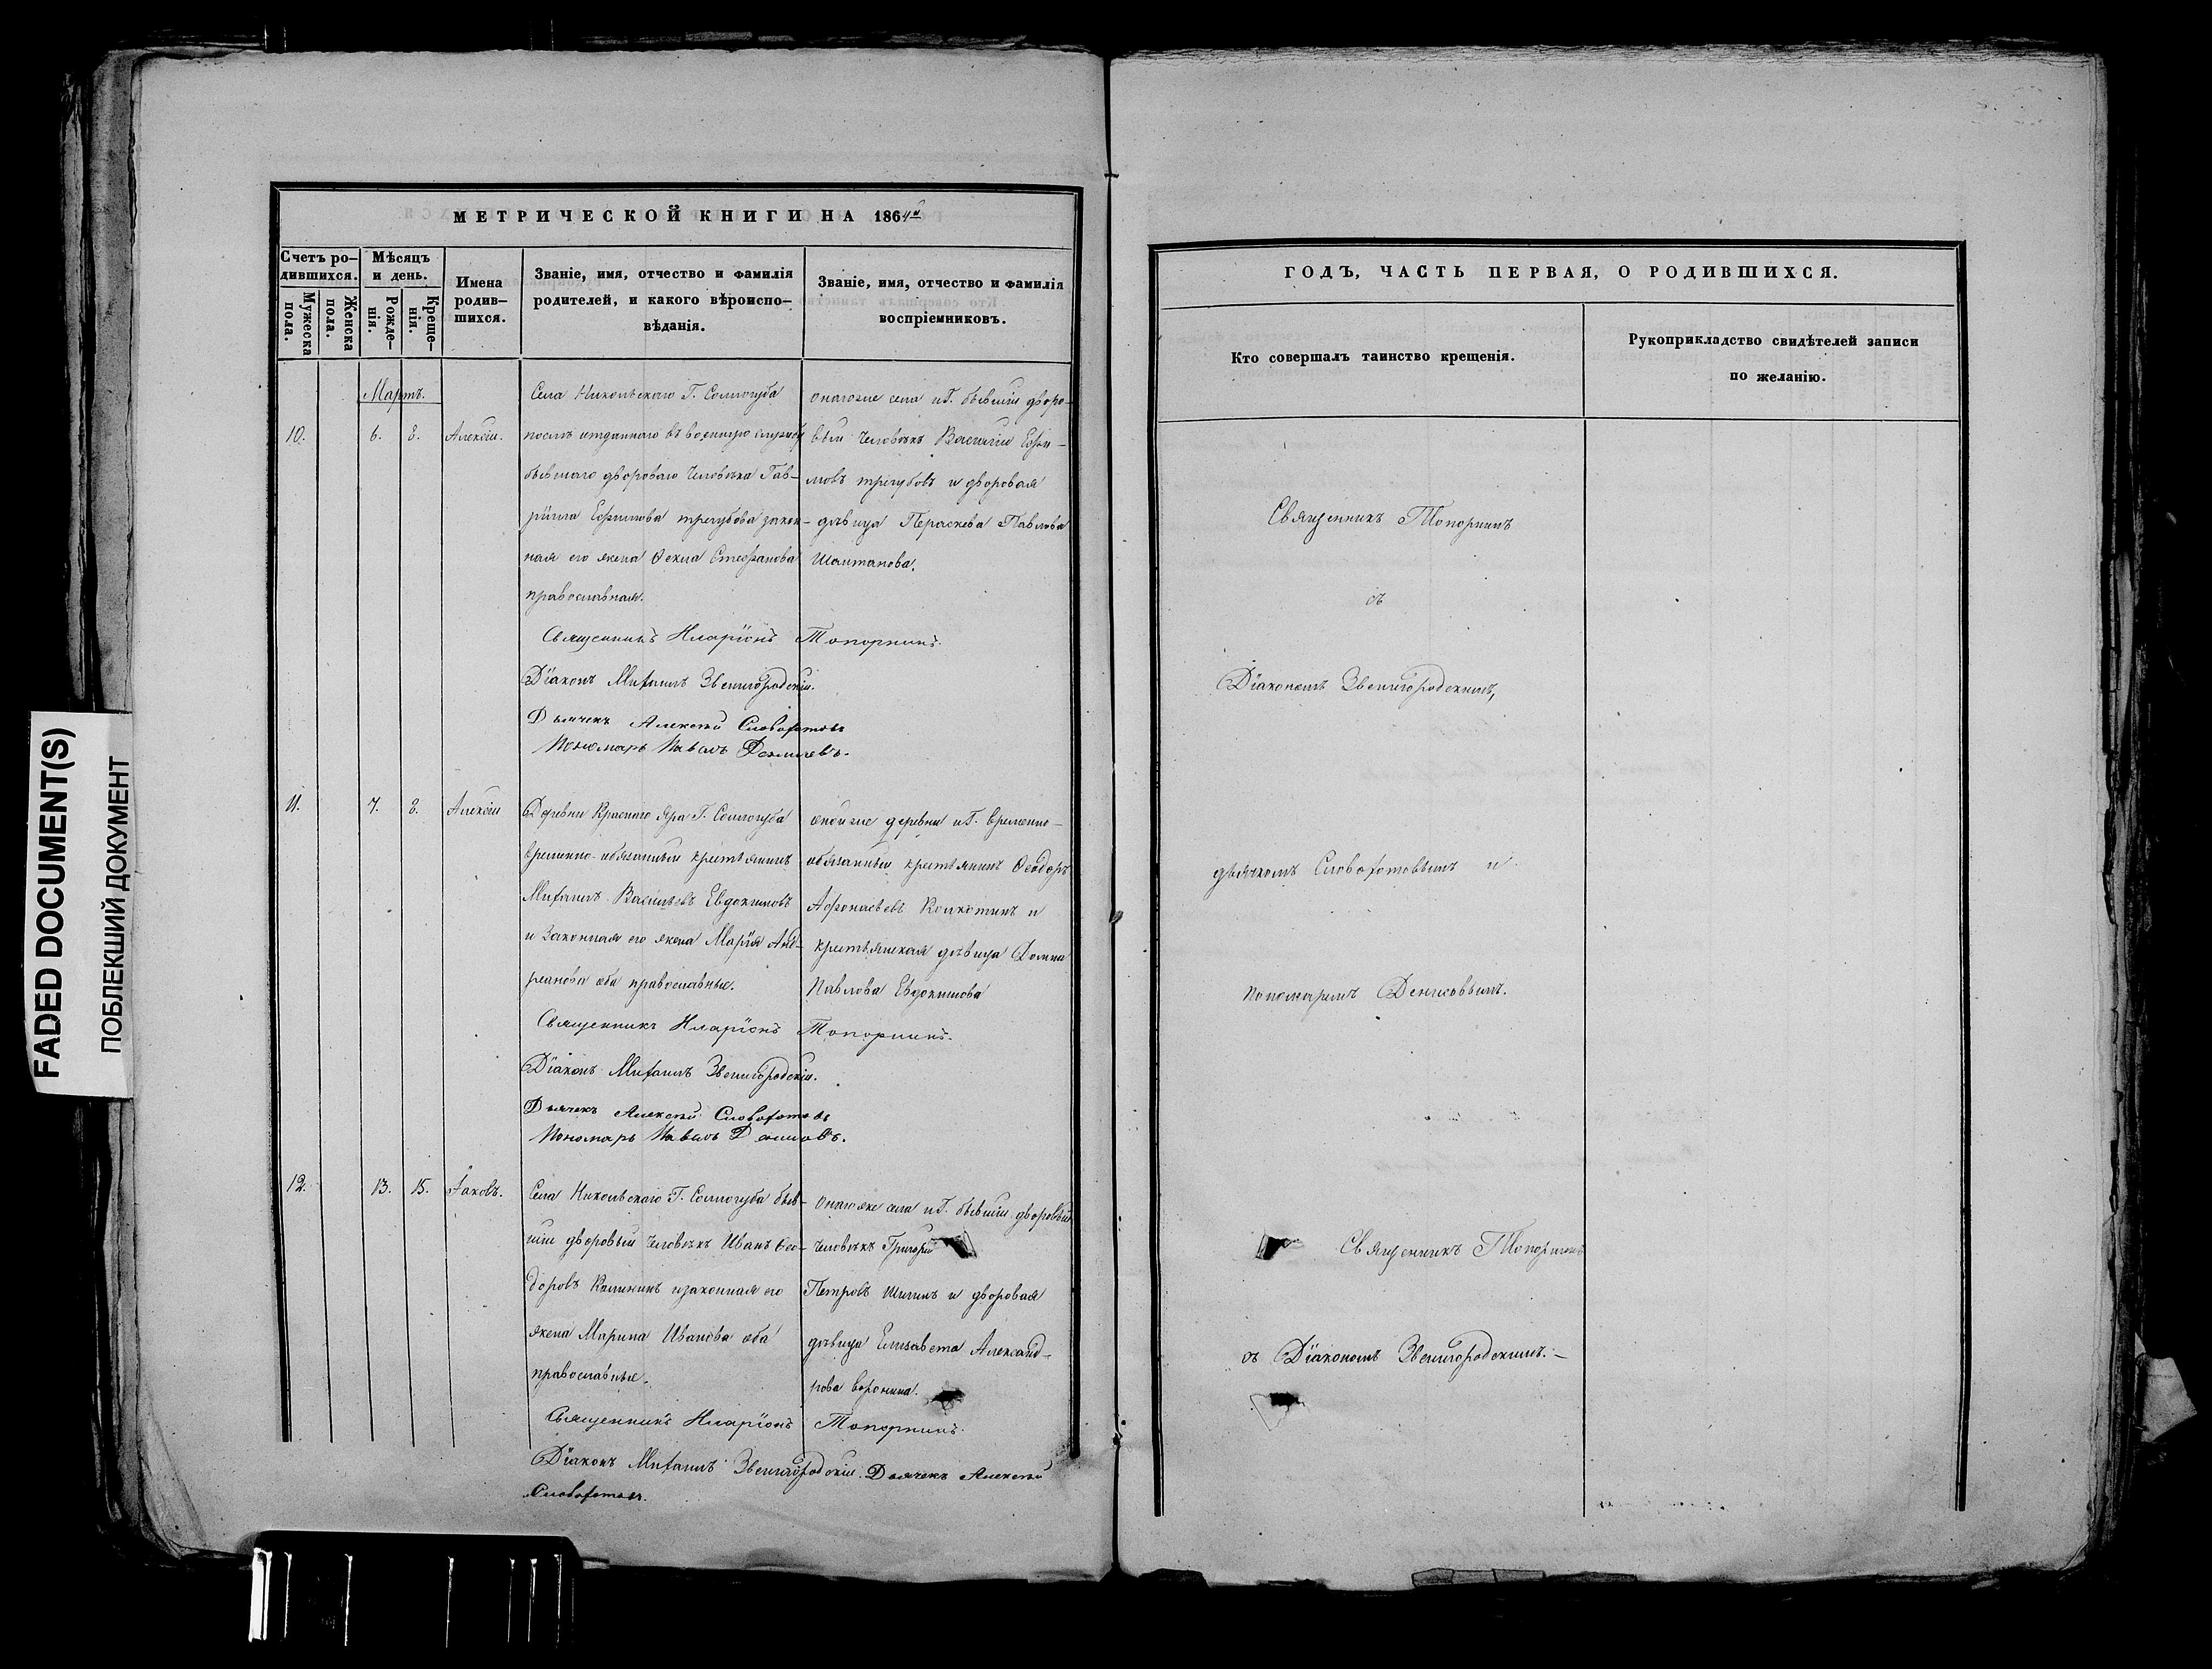 МЕТРИЧЕСКОЙ КНИГИ НА 1864й
Счетъ ро-
дившихся.
Мужеска
пола.
Женска
пола.
Мѣсяцъ
и день.
Рожде-
нія.
Креще-
нія.
Имена
родив-
шихся.
Званіе, имя, отчество и фамилія
родителей, и какого вѣроиспо-
вѣданія.
Званіе, имя, отчество и фамилія
воспріемниковъ.
Мартъ.
10.
6.
8.
Алексѣй.
Села Никольскаго Г. Соллогуба
послѣ отданнаго въ военную службу
бывшаго двороваго человѣка Гав-
ріила Ефимова Трегубова закон-
ная его жена Ѳекла Стефанова
православная.
онагоже села и Г. бывшій дворо-
вый человѣкъ Василій Ефи-
мовъ Трегубовъ и дворовая
дѣвица Параскева Павлова
Шалтанова.
Священникъ Иларіонъ Топорнинъ.
Діаконъ Михаилъ Звенигородскій.
Дьячекъ Алексѣй Словохотовъ
Пономарь Павелъ Денисовъ.
11.
7.
8.
Алексѣй
Деревни Краснаго Яра Г. Соллогуба
временно-обязанный крестьянинъ
Михаилъ Васильевъ Евдокимовъ
и законная его жена Марія Анд-
реанова оба православные.
онойже деревни и Г. временно-
обязанный крестьянинъ Ѳеодоръ
Афонасьевъ Колкотинъ и
крестьянская дѣвица Домна
Павлова Евдокимова
Священникъ Иларіонъ Топорнинъ.
Діаконъ Михаилъ Звенигородскій.
Дьячекъ Алексѣй Словохотовъ
Пономарь Павелъ Денисовъ.
12.
13.
15.
Іаковъ.
Села Никольскаго Г. Соллогуба быв-
шій дворовый человѣкъ Иванъ Ѳео-
доровъ Калининъ и законная его
жена Марина Иванова оба
православные.
онагоже села и Г. бывшій дворовый
человѣкъ Григорій
Петровъ Шигинъ и дворовая
дѣвица Елисавета Александ-
рова Воронина.
Священникъ Иларіонъ Топорнинъ.
Діаконъ Михаилъ Звенигородскій. Дьячекъ Алексѣй
Словохотовъ.
ГОДЪ, ЧАСТЬ ПЕРВАЯ, О РОДИВШИХСЯ.
Кто совершалъ таинство крещенія.
Рукоприкладство свидѣтелей записи
по желанію.
Священникъ Топорнинъ
съ
Діакономъ Звенигородскимъ,
дьячкомъ Словохотовымъ и
пономаремъ Денисовымъ.
Священникъ Топорнинъ
съ Діакономъ Звенигородскимъ.-
FADED DOCUMENT(S)
ПОБЛЕКШИЙ ДОКУМЕНТ